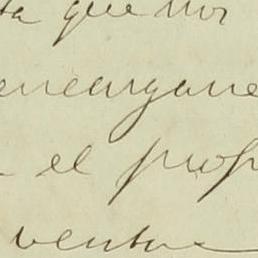 ta que nos
encargane
a el prop
ventura